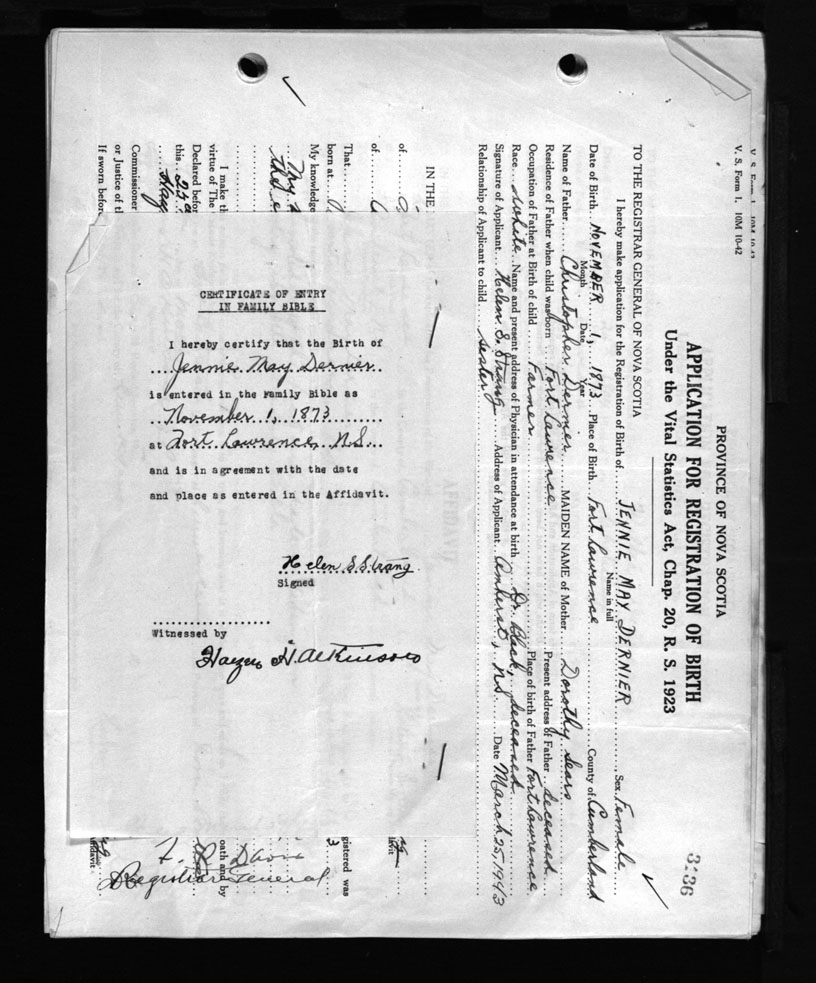 V. S. Form 1. 10M 10-42
PROVINCE OF NOVA SCOTIA
APPLICATION FOR REGISTRATION OF BIRTH
Under the Vital Statistics Act, Chap. 20, R. S. 1923
3:36
TO THE REGISTRAR GENERAL OF NOVA SCOTIA
I hereby make application for the Registration of Birth of JENNIE MAY DERNIER Sex Female
Name in full
Date of Birth NOVEMBER 1, 1873 Place of Birth Fort Lawrence County of Cumberland
Month Date Year
Name of Father Christopher Dernier MAIDEN NAME of Mother Dorothy Sears
Residence of Father when child was born Fort Lawrence Present address of Father deceased
Occupation of Father at Birth of child Farmer Place of birth of Father Fort Lawrence
Race White Name and present address of Physician in attendance at birth Dr. Black, deceased
Signature of Applicant Helen S. Strang Address of Applicant Amherst, N.S. Date March 25, 1943
Relationship of Applicant to child sister
IN THE
of
of
That
born at
My knowledge
My
the
I make th
virtue of The
Declared befor
this 25
Commissioner
or Justice of th
If sworn before
gistered was
3
oath and by
F. Davis
Registrar General
CERTIFICATE OF ENTRY
IN FAMILY BIBLE
I hereby certify that the Birth of
Jennie May Dernier
is entered in the Family Bible as
November 1, 1873
at Fort Lawrence, N.S.
and is in agreement with the date
and place as entered in the Affidavit.
Helen S Strang
Signed
Witnessed by
H. Atkinson